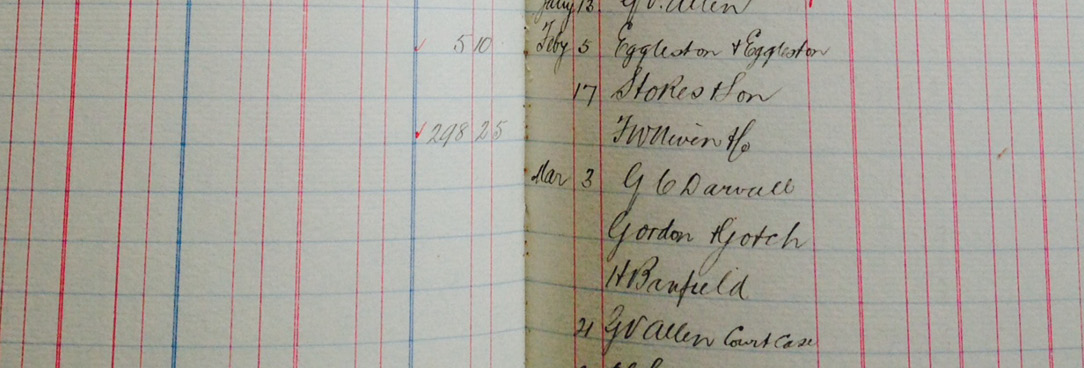 5 10
298 25
13 G.V. Allen
Feby 5 Eggleston & Eggleston
17 Stokes & Son
F W Niven & Co
Mar 3 G C Darvall
Gordon & Gotch
H Banfield
21 G V Allen Court Case